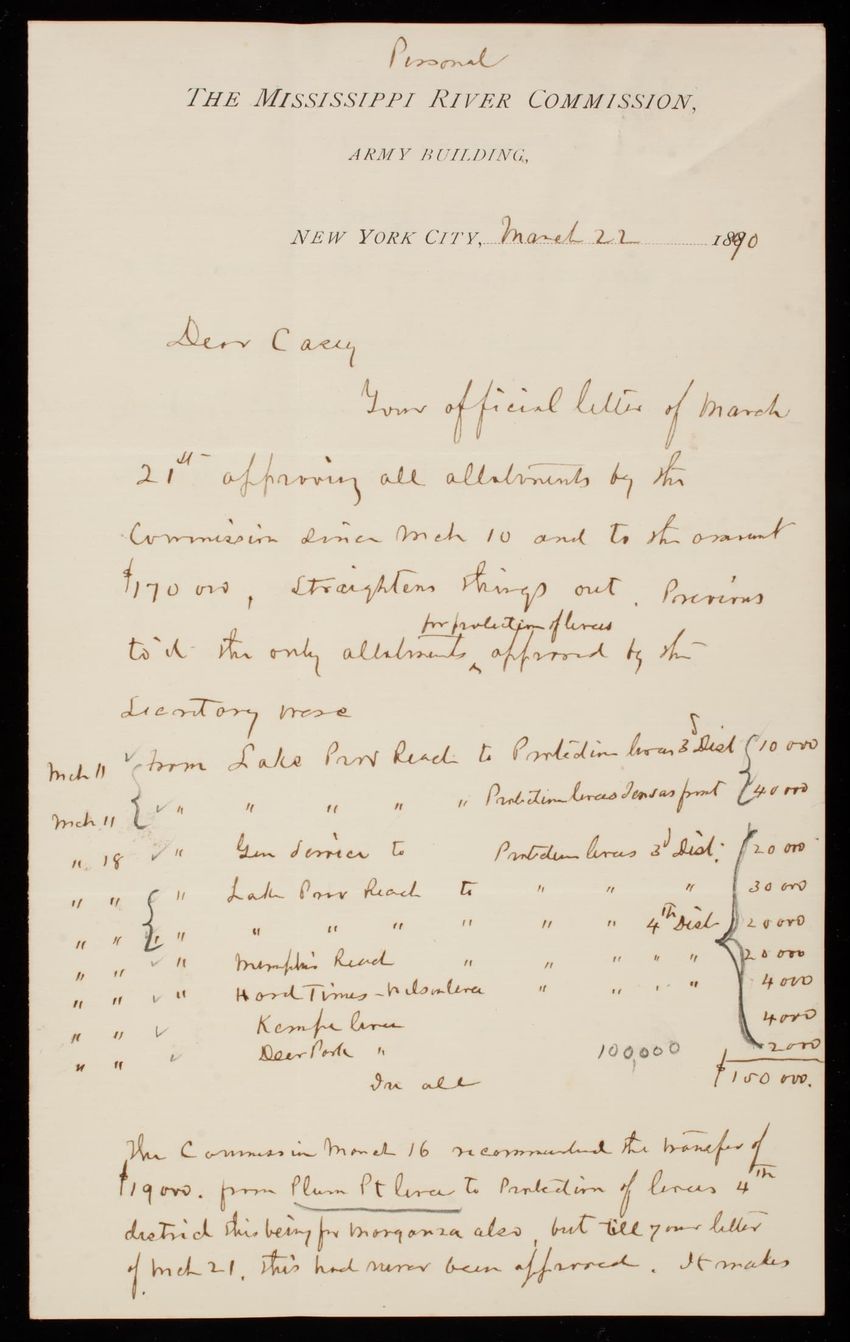 Personal
THE MISSISSIPPI RIVER COMMISSION,
ARMY BUILDING,
NEW YORK CITY, March 22 1890
Dear Casey
Your official letter of March
21st approving all allotments by the
Commission since Mch 10 and to the amount
$170 000, straightens things out. Previous
to it the only allotments for protection of levees approved by the
Secretary were
Mch 11 From Lake Prov Reach to Protection levees 3d Dist 10 000
Mch 11 " " " " " Protection levees Tensas front 40 000
" 18 " Gen Service to Protection levees 3d Dist. 20 000
" " " Lake Prov Reach to " " " 30 000
" " " " " " " " " 4th Dist 20 000
" " " Memphis Reach " " " " " 20 000
" " " Hard Times - Wilson levee " " " " 4000
" " Kempe levee 4000
" " Deer Park " 100,000 2000
In all $150 000.
The Commission March 16 recommended the transfer of
$19000. from Plum Pt levee to Protection of levees 4th
district this being for Morganza also, but till your letter
of Mch 21, this had never been approved. It makes